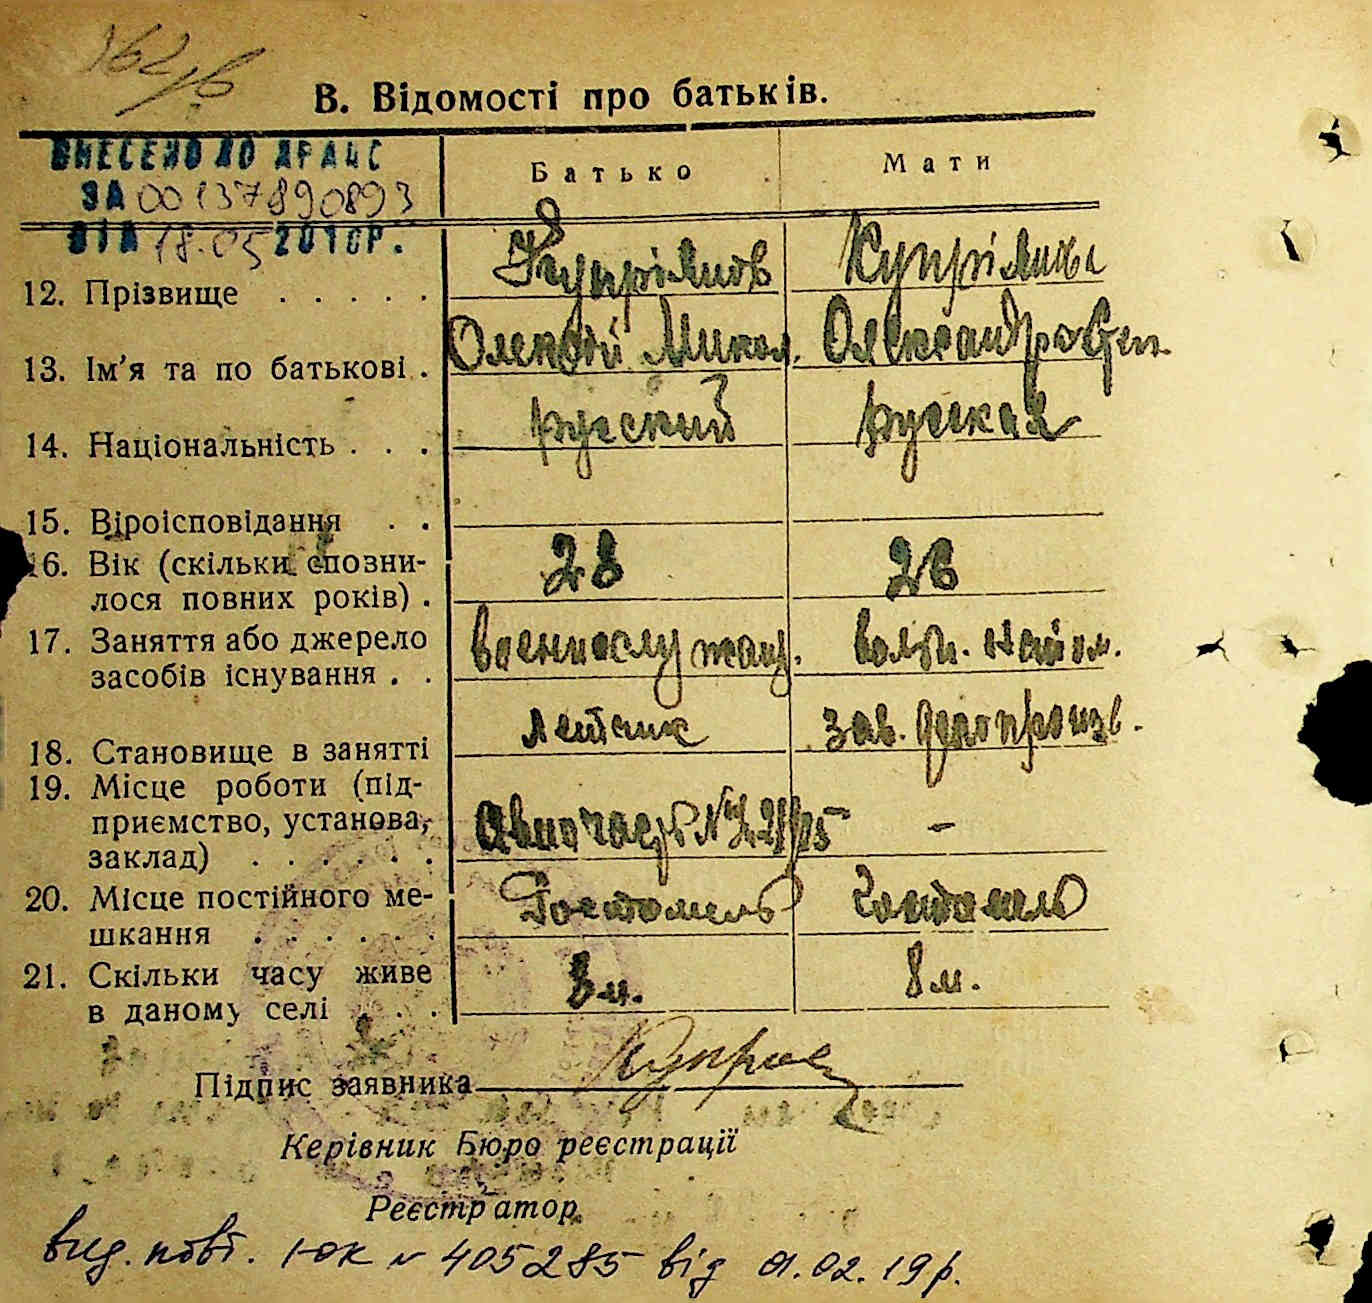 362/в
В. Відомості про батьків.
ВНЕСЕНО ДО ДРАЦС
ЗА 00137890893
ВІД 18.05 2016Р.
Батько Мати
12. Прізвище . . . . .
13. Ім'я та по батькові . Олексій Микол. Олександра Степ.
14. Національність . . . русский русская
15. Віроісповідання . .
16. Вік (скільки сповни- 28 26
лося повних років) .
17. Заняття або джерело военнослужащ. вольн. найом.
засобів існування . .
18. Становище в занятті летчик зав. делопроизв.
19. Місце роботи (під-
приємство, установа, Авиачасть № -
заклад) . . . . . .
20. Місце постійного ме- Гостомель Гостомель
шкання . . . . . .
21. Скільки часу живе 8 м. 8 м.
в даному селі . . . .
Підпис заявника
Керівник Бюро реєстрації
Реєстратор
вид. повт. І-ОК № 405285 від 01.02.19р.